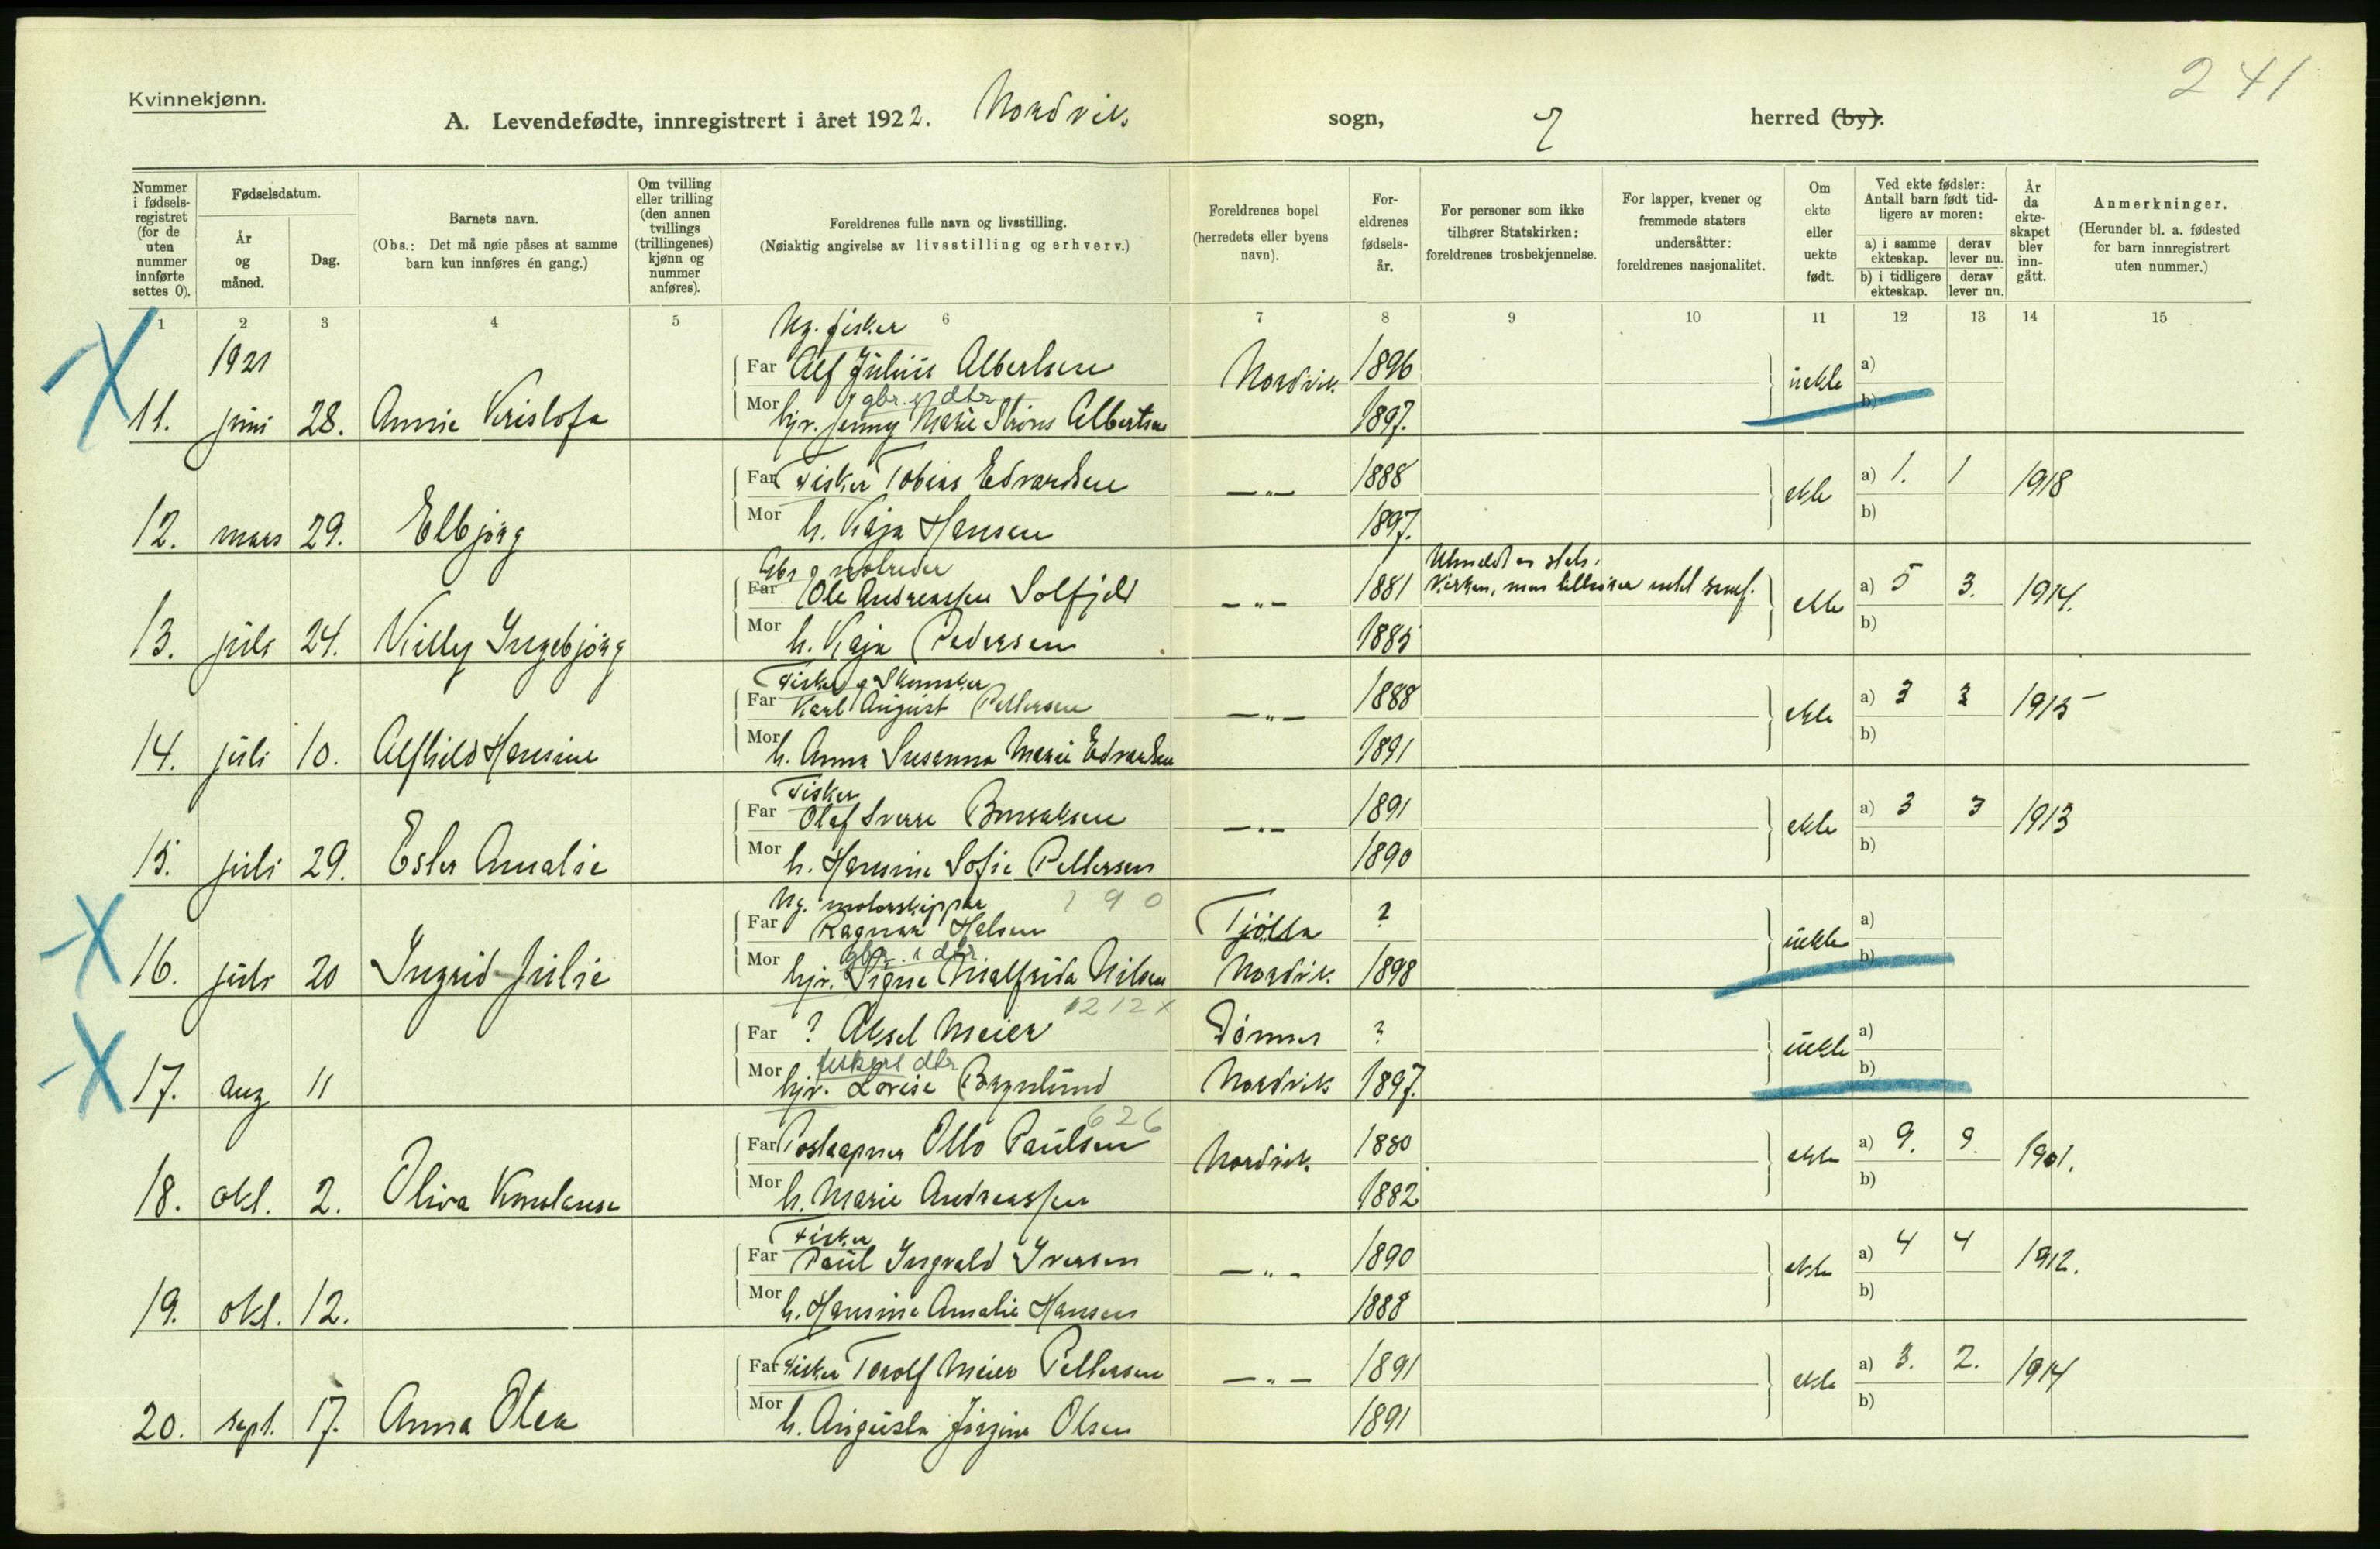 241
Kvinnekjønn.
A. Levendefødte, innregistrert i året 1922. Nordvik. sogn, herred (by).
Nummer i fødsels-registret (for de uten nummer innførte settes 0).
Fødselsdatum.
År og måned.
Dag.
Barnets navn.
(Obs.: Det må nøie påses at samme barn kun innføres én gang.)
Om tvilling eller trilling (den annen tvillings (trillingenes) kjønn og nummer anføres).
Foreldrenes fulle navn og livsstilling.
(Nøiaktig angivelse av livsstilling og erhverv.)
Foreldrenes bopel (herredets eller byens navn).
For-eldrenes fødsels-år.
For personer som ikke tilhører Statskirken: foreldrenes trosbekjennelse.
For lapper, kvener og fremmede staters undersåtter: foreldrenes nasjonalitet.
Om ekte eller uekte født.
Ved ekte fødsler: Antall barn født tid-ligere av moren:
a) i samme ekteskap. derav lever nu.
b) i tidligere ekteskap. derav lever nu.
År da ekte-skapet blev inn-gått.
Anmerkninger.
(Herunder bl. a. fødested for barn innregistrert uten nummer.)
1 2 3 4 5 6 7 8 9 10 11 12 13 14 15
1921
Ug. fisker
Far Alf Julius Albertsen Nordvik. 1896 uekte a)
gbr. dtr
11. juni 28. Annie Kristofa Mor hjv. Jenny Marie Albertsen 1897. b)
Far Fisker Tobias Edvardsen —„— 1888 ekte a) 1. 1 1918
12. mars 29. Elbjørg Mor h. Kaja Hansen 1897. b)
Gbr. o notreder
Utmeldt av stats.
Far Ole Andreassen Solfjeld —„— 1881 kirken, men tilhører intet samf. ekte a) 5 3. 1914.
13. juli 24. Villy Ingebjørg Mor h. Kaja Pedersen 1885 b)
Fisker o Skomaker
Far Karl August Pettersen —„— 1888 ekte a) 3 3 1915
14. juli 10. Alfhild Hansine Mor h. Anna Susanna Marie Edvardsen 1891 b)
Fisker
Far Olaf Sverre —„— 1891 ekte a) 3 3 1913
15. juli 29. Ester Amalie Mor h. Hansine Sofie Pettersen 1890 b)
Ug. motorskipper 190
Far Ragnar Tjötta ? uekte a)
gbr. dtr
16. juli 20 Ingrid Julie Mor hjv. Signe Nilsen Nordvik. 1898 b)
1212 x
Far ? Aksel Meier Dønnes ? uekte a)
fiskers dtr
17. aug 11 Mor hjv. Lovise Nordvik 1897. b)
626
Far Postaapner Otto Paulsen Nordvik. 1880 ekte a) 9. 9. 1901.
18. okt. 2. Oliva Konstanse Mor h. Marie Andreassen 1882 b)
Fisker
Far Paul Ingvald Iversen —„— 1890 ekte a) 4 4 1912.
19. okt. 12. Mor h. Hansine Amalie Hansen 1888 b)
Far Fisker Torolf Meier Pettersen —„— 1891 ekte a) 3. 2. 1914
20. sept. 17. Anna Olea Mor h. Augusta Jørgine Olsen 1891 b)